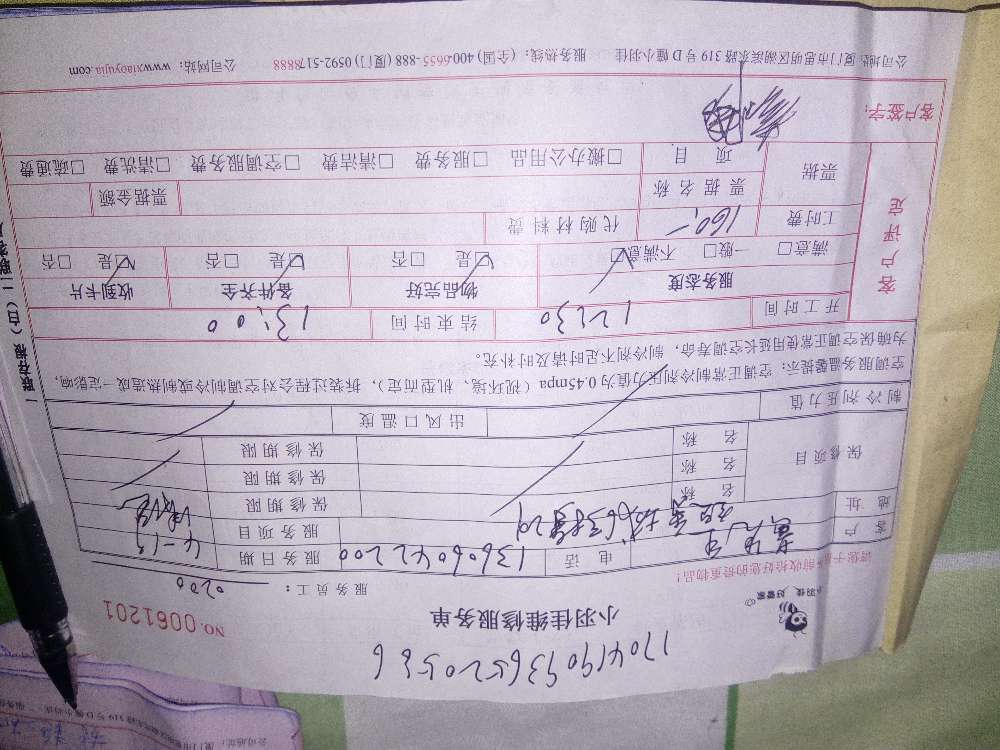 小羽佳 好管家
170419093652 0566
小羽佳维修服务单
NO. 0061201
请您于服务前收拾好您的贵重物品!
服务员工: 0200
客户 电话 13606042200 服务日期 4-19
地址 服务项目
保修项目 名称 保修期限
名称 保修期限
名称 保修期限
制冷剂压力值 出风口温度
空调服务温馨提示:空调正常制冷剂压力值为0.45mpa(视环境、机型而定),拆装过程会对空调制冷或制热造成一定影响,
为确保空调正常使用延长空调寿命,制冷剂不足时请及时补充。
开工时间 12:30 结束时间 13:00
客户评定
服务态度 物品完好 备件齐全 收到卡片
满意□ 一般□ 不满意□ □是 □否 □是 □否 □是 □否
工时费 160,- 代购材料费
票据 票据名称 票据金额
项目 □搬办公用品 □服务费 □清洁费 □空调服务费 □清洗费 □疏通费
客户签字:
公司地址:厦门市思明区湖滨东路319号D幢小羽佳 服务热线:(全国)400-6655-888 (厦门)0592-5178888 公司网站:www.xiaoyujia.com
一联存根(白)二联客户